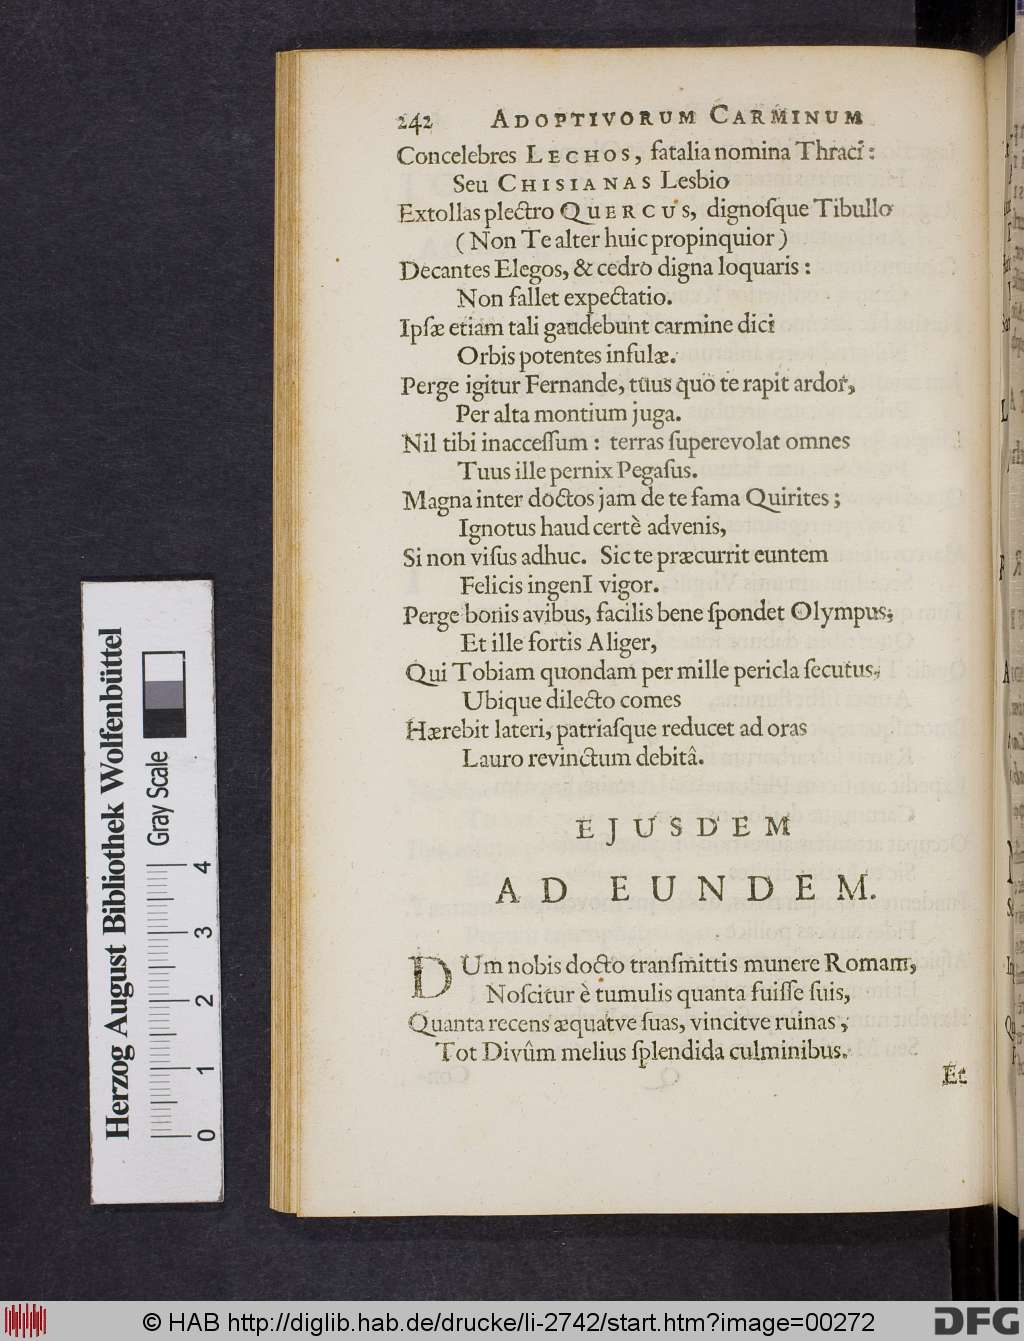 242 ADOPTIVORUM CARMINUM
Concelebres LECHOS, fatalia nomina Thraci:
Seu CHISIANAS Lesbio
Extollas plectro QUERCUS, dignoſque Tibullo
(Non Te alter huic propinquior)
Decantes Elegos, & cedro digna loquaris:
Non fallet expectatio.
Ipſæ etiam tali gaudebunt carmine dici
Orbis potentes inſulæ.
Perge igitur Fernande, tuus quò te rapit ardor,
Per alta montium juga.
Nil tibi inacceſſum: terras ſuperevolat omnes
Tuus ille pernix Pegaſus.
Magna inter doctos jam de te fama Quirites;
Ignotus haud certè advenis,
Si non viſus adhuc. Sic te præcurrit euntem
Felicis ingenI vigor.
Perge bonis avibus, facilis bene ſpondet Olympus;
Et ille fortis Aliger,
Qui Tobiam quondam per mille pericla ſecutus,
Ubique dilecto comes
Hærebit lateri, patriaſque reducet ad oras
Lauro revinctum debitâ.
EJUSDEM
AD EUNDEM.
DUm nobis docto tranſmittis munere Romam,
Noſcitur è tumulis quanta fuiſſe ſuis,
Quanta recens æquatve ſuas, vincitve ruinas,
Tot Divûm melius ſplendida culminibus.
Et
Herzog August Bibliothek Wolfenbüttel
Gray Scale
0 1 2 3 4
© HAB http://diglib.hab.de/drucke/li-2742/start.htm?image=00272
DFG